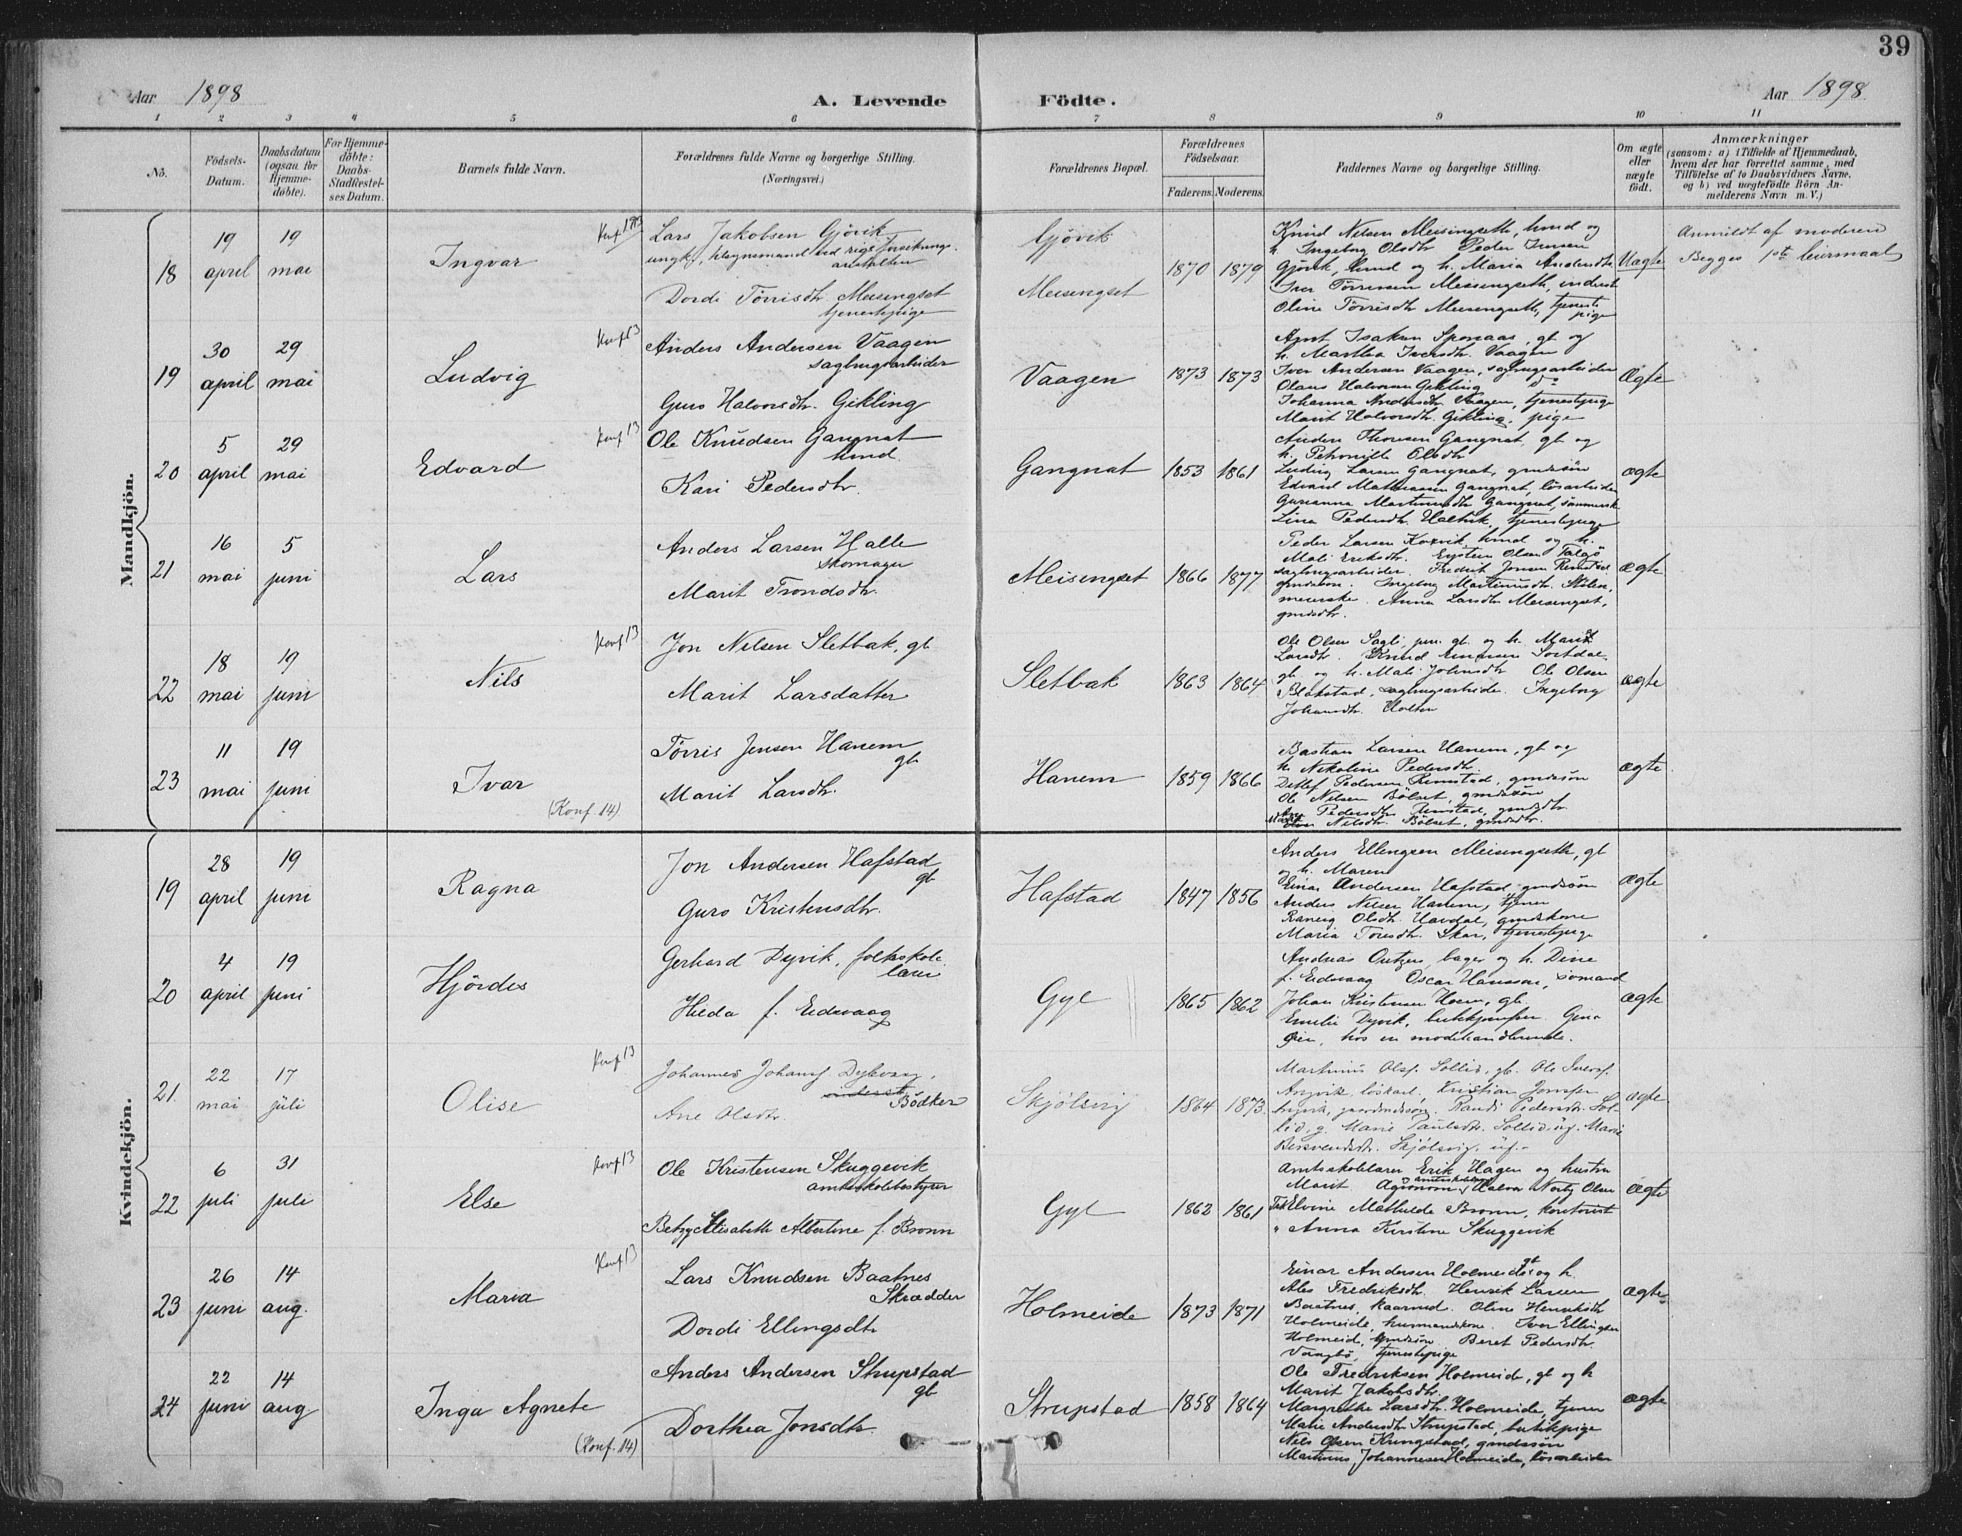 39
Aar 1898
A. Levende Födte.
Aar 1898
1 2 3 4 5 6 7 8 9 10 11
No.
Födsels-
Datum.
Daabsdatum
(ogsaa for
Hjemme-
döbte).
For Hjemme-
döbte:
Daabs-
Stadfæstel-
ses Datum.
Barnets fulde Navn.
Forældrenes fulde Navne og borgerlige Stilling.
(Næringsvei.)
Forældrenes Bopæl.
Forældrenes
Födselsaar.
Faderens. Moderens.
Faddernes Navne og borgerlige Stilling.
Om ægte
eller
uægte
födt.
Anmærkninger
(saasom: a) i Tilfælde af Hjemmedaab,
hvem der har forrettet samme, med
Tilföielse af to Daabsvidners Navne,
og b) ved uægtefödte Börn An-
melderens Navn m. V.)
Mandkjön.
18
19 april
19 mai
Ingvar
Lars Jakobsen Gjövik
ungk.,
Dordi Törrisdtr. Meisengset
tjenestepige
Gjövik
Meisengset
1870 1879
Knud Nilsen Meisingseth, kmd og
h. Ingeborg Olsdtr. Peder Iversen
Gjövik, kmd og h. Maria Andersdtr.
Iver Törresen Meisengseth, inderst
Oline Törrisdtr Meisengseth, tjeneste
pige
Uægte
Anmeldt af moderen
Begges 1ste leiermaal
19
30 april
29 mai
Ludvig
Konf 13
Anders Andersen Vaagen
sagbrugsarbeider
Guro Halvorsdtr. Gikling
Vaagen
1873 1873
Arnt Isaksen Sponaas, gb og
h. Martha Iversdtr. Vaagen
Iver Andersen Vaagen, sagbrugsarbeider
Olaus Halvorsen Gikling do
Johanna Andersdtr Vaagen, tjenestepige
Marit Halvorsdtr. Gikling, pige
Ægte
20
5 april
29 mai
Edvard
Konf 13
Ole Knudsen Gangnat
kmd.
Kari Pedersdtr.
Gangnat
1853 1861
Anders Thoresen Gangnat, gb og
h. Petronille Olsdtr
Ludvig Larsen Gangnat, gmdssön
Edvard Mathiassen Gangnat, lösarbeider
Gurianna Martinusdtr Gangnat, sömmerske
Lina Pedersdtr. Holtvik, tjenestepige
ægte
21
16 mai
5 juni
Lars
Anders Larsen Halle
Skomager
Marit Trondsdtr.
Meisengset
1866 1877
Peder Larsen Koxvik, kmd og h.
Mali Eriksdtr. Eysten Olsen Talgö
sagbrugsarbeider. Fredrik Jonsen Rimstad
gmdssön. Ingeborg Martinusdtr. Stölen,
meierske. Anna Larsdtr Meisengset,
gmdsdtr.
ægte
22
18 mai
19 juni
Nils
Konf 13
Jon Nilsen Sletbak, gb
Marit Larsdatter
Sletbak
1863 1864
Ole Olsen Sagli jun. gb. og h. Marit
Larsdtr. Knud Sortdal
gb og h. Mali Johnsdtr Ole Olsen
Blakstad, sagbrugsarbeider. Ingeborg
Johansdtr. Holten
ægte
23
11 mai
19 juni
Ivar
(Konf. 14)
Törris Jensen Hanem
gb
Marit Larsdtr.
Hanem
1859 1866
Bastian Larsen Hanem, gb og
h. Nikoline Pedersdtr.
Detlef Pedersen Rimstad, gmdssön
Ole Nilsen Bölset, gmdssön
Pedersdtr. Rimstad, gmdsdtr
Nilsdtr. Bölset, gmdsdtr.
ægte
Kvindekjön.
19
28 april
19 juni
Ragna
Jon Andersen Hafstad
gb
Guro Kristensdtr.
Hafstad
1847 1856
Anders Ellingsen Meisingseth, gb
og h. Maren
Einar Andersen Hafstad, gmdssön
Anders Nilsen Hanem, tjener
Ranvig Olsdtr. Havdal, gmdskone
Maria Toresdtr. Skar, tjenestepige
Ægte
20
4 april
19 juni
Hjördis
Gerhard Dyvik, folkskole
lærer
Hilda f. Eidsvaag
Gyl
1865 1862
Andreas Ourtzen, bager og h. Dina
f. Eidsvaag Oscar Hansson, sömand
Johan Kristensen Hoem, gb.
Emilie Dyvik, butikjomfru. Gina
Öien, hos en modehandlerinde.
ægte
21
22 mai
17 juli
Olise
Konf 13
Johannes Johans. Dybvaag.
inderst Bödker
Ane Olsdtr.
Skjölsvig
1864 1873
Martinus Olss. Sollid, gb. Ole Iverss.
Angvik, löskarl, Kristian Jonsss.
Angvik, gaardmdssön. Randi Pedersdtr. Sol-
lid, g. Marie Paulsdtr. Sollid ug. Marie
Bersvendsdtr. Skjölsvig, ug.
ægte
22
6 juli
31 juli
Else
Konf 13
Ole Kristensen Skuggevik
amtsskolebestyrer
Betzy Elisabeth Albertine f. Bronn
Gyl
1862 1861
Amtsskolelærer Erik Hagen og hustru
Marit Agronom, Halvor Norby Olsen
Frk Elvine Mathilde Bronn, kontorist
" Anna Kirstine Skuggevik
Ægte
23
26 juni
14 aug.
Maria
Konf 13
Lars Knudsen Baatnes
Skrædder
Dordi Ellingsdtr
Holmeide
1873 1871
Einar Andersen Holmeide gb og h.
Ales Fredriksdtr. Henrik Larsen
Baatnes, kaarmd. Oline Henriksdtr
Holmeide, husmandskone. Iver Ellingsen
Holmeid, gmdssön Beret Pedersdtr.
Vaagbö, tjenestepige
Ægte
24
22 juni
14 aug
Inga Agnete
(Konf. 14)
Anders Andersen Strupstad
gb
Dorthea Jonsdtr.
Strupstad
1858 1864
Ole Fredriksen Holmeide, gb og h
Marit Jakobsdtr.
Margrethe Larsdtr. Holmeide, tjener
Marie Andersdtr Strupstad, butikpige
Nils Olsen Kringstad, gmdssön
Martinus Johannesen Holmeide, lösarbeider
ægte